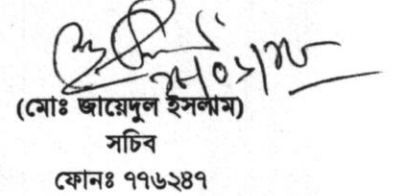 (মোঃ জায়েদুল ইসলাম)
সচিব
ফোনঃ ৭৭৬২৪৭